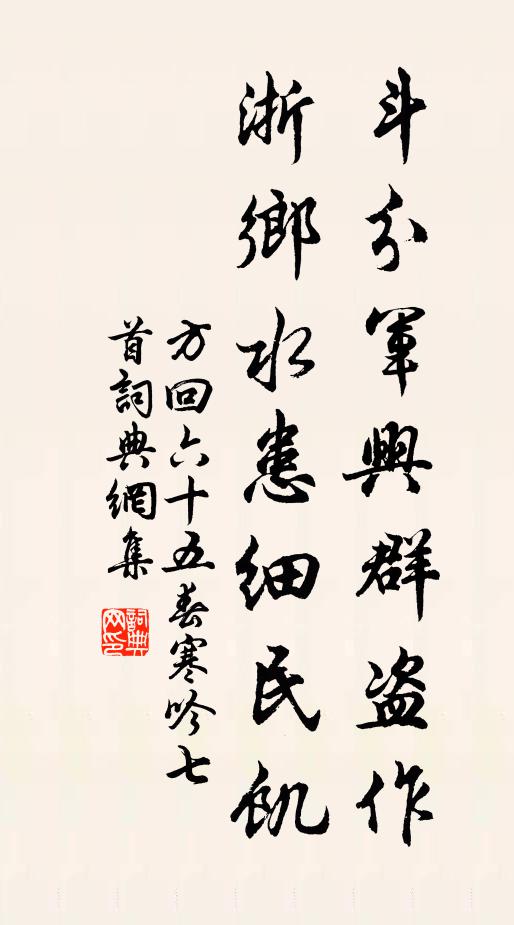 斗分軍興群盜作
浙鄉水患細民飢
方回六十五春寒吟七
首詞典網集
詞典網印